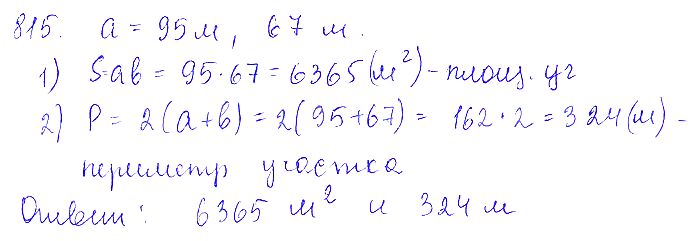 815. a = 95 м, 67 м.
1) S=ab = 95·67 = 6365 (м²) - площ. уч
2) P = 2(a+b) = 2(95+67) = 162·2 = 324 (м) -
периметр участка
Ответ: 6365 м² и 324 м